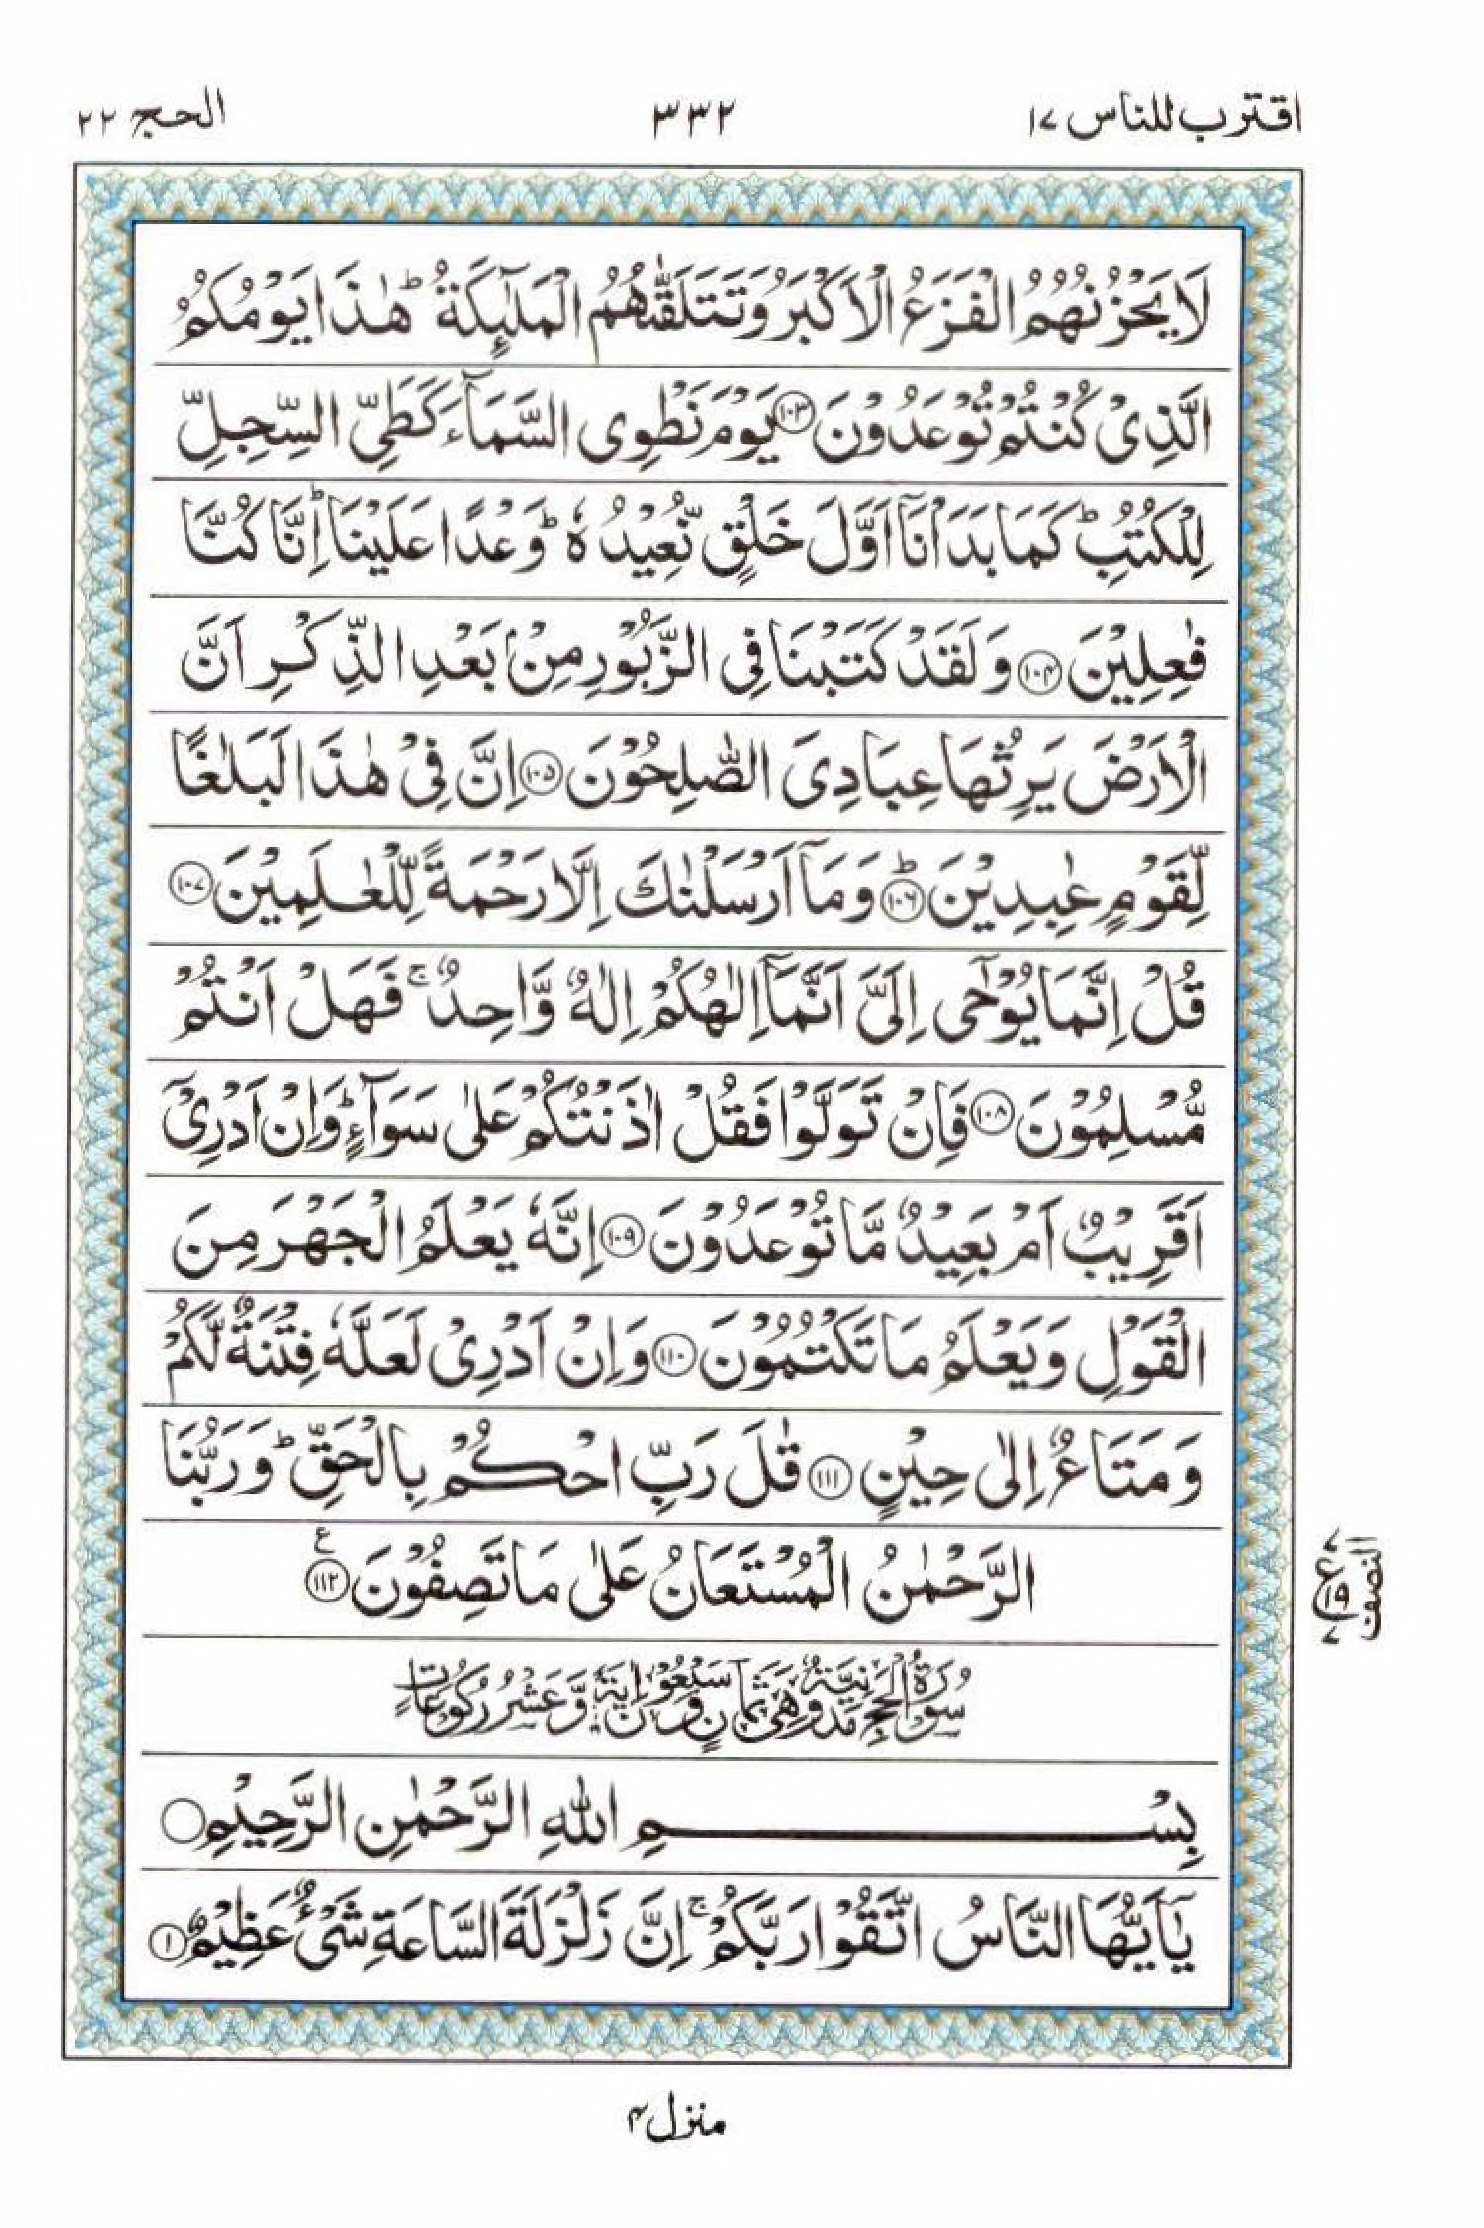 اقترب للناس ۱۷
۳۳۲
الحج ۲۲
لَا يَحْزُنُهُمُ الْفَزَعُ الْاَكْبَرُ وَتَتَلَقّٰىهُمُ الْمَلٰٓئِكَةُ ؕ هٰذَا يَوْمُكُمُ
الَّذِىْ كُنْتُمْ تُوْعَدُوْنَ ﴿۱۰۳﴾ يَوْمَ نَطْوِى السَّمَآءَ كَطَىِّ السِّجِلِّ
لِلْكُتُبِ ؕ كَمَا بَدَاْنَاۤ اَوَّلَ خَلْقٍ نُّعِيْدُهٗ ؕ وَعْدًا عَلَيْنَا ؕ اِنَّا كُنَّا
فٰعِلِيْنَ ﴿۱۰۴﴾ وَلَقَدْ كَتَبْنَا فِى الزَّبُوْرِ مِنْۢ بَعْدِ الذِّكْرِ اَنَّ
الْاَرْضَ يَرِثُهَا عِبَادِىَ الصّٰلِحُوْنَ ﴿۱۰۵﴾ اِنَّ فِىْ هٰذَا لَبَلٰغًا
لِّقَوْمٍ عٰبِدِيْنَ ؕ ﴿۱۰۶﴾ وَمَاۤ اَرْسَلْنٰكَ اِلَّا رَحْمَةً لِّلْعٰلَمِيْنَ ﴿۱۰۷﴾
قُلْ اِنَّمَا يُوْحٰۤى اِلَىَّ اَنَّمَاۤ اِلٰهُكُمْ اِلٰهٌ وَّاحِدٌ ۚ فَهَلْ اَنْتُمْ
مُّسْلِمُوْنَ ﴿۱۰۸﴾ فَاِنْ تَوَلَّوْا فَقُلْ اٰذَنْتُكُمْ عَلٰى سَوَآءٍ ؕ وَاِنْ اَدْرِىْۤ
اَقَرِيْبٌ اَمْ بَعِيْدٌ مَّا تُوْعَدُوْنَ ﴿۱۰۹﴾ اِنَّهٗ يَعْلَمُ الْجَهْرَ مِنَ
الْقَوْلِ وَيَعْلَمُ مَا تَكْتُمُوْنَ ﴿۱۱۰﴾ وَاِنْ اَدْرِىْ لَعَلَّهٗ فِتْنَةٌ لَّكُمْ
وَمَتَاعٌ اِلٰى حِيْنٍ ﴿۱۱۱﴾ قٰلَ رَبِّ احْكُمْ بِالْحَقِّ ؕ وَرَبُّنَا
الرَّحْمٰنُ الْمُسْتَعَانُ عَلٰى مَا تَصِفُوْنَ ﴿۱۱۲﴾ ع
النصف
سُوْرَةُ الْحَجِّ مَدَنِيَّةٌ وَّهِىَ ثَمَانٍ وَّسَبْعُوْنَ اٰيَةً وَّعَشْرُ رُكُوْعَاتٍ
بِسْمِ اللهِ الرَّحْمٰنِ الرَّحِيْمِ
يٰۤاَيُّهَا النَّاسُ اتَّقُوْا رَبَّكُمْ ۚ اِنَّ زَلْزَلَةَ السَّاعَةِ شَىْءٌ عَظِيْمٌ ﴿۱﴾
منزل ۴